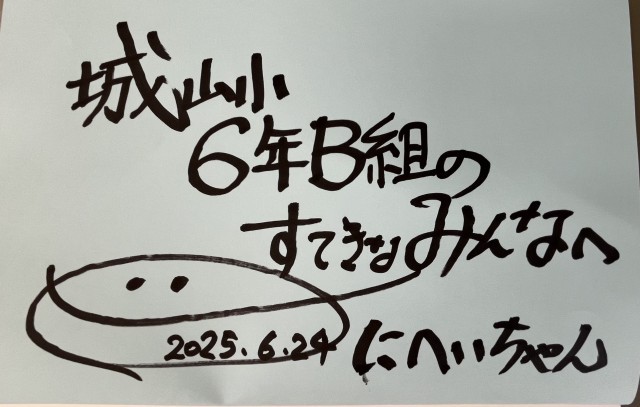 城山小
6年B組の
すてきなみんなへ
2025.6.24 にへいちゃん